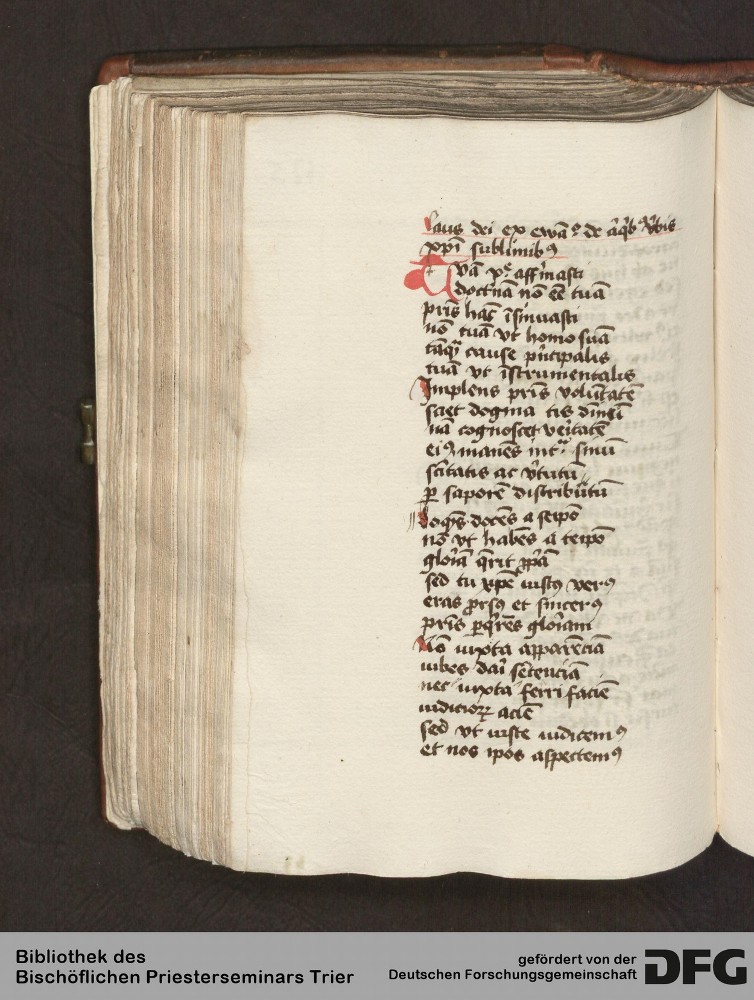 Laus dei ex ewā⁹ de aq̇b⁹ v̄bis
xp̄i sublimib⁹
Uā xp̄e affīmasti
doctⁱnā nō eē tuā
pr̄is hāc īsinuasti
nō tuā vt homo suā
tāq̄ cause pⁱncipalis
tuā vt īstrumentalis
Implens pr̄is volūtatē
faciet dogma
nā cognoscet veⁱtatē
ei⁹ manēs sinū
scītatis ac v̄tutū
p saporē distributū
Loq̄ns docēs a seip̄o
nō vt habēs a teip̄o
gloⁱā q̄rit p̄pⁱā
sed tu xp̄e iust⁹ ver⁹
eras prors⁹ et sincer⁹
pr̄is p̄q̄rēs gloⁱam
Nō iuxta apparēciā
iubes daⁱ sētenciā
nec iuxta ferri faciē
iudicioꝝ aciē
sed vt iuste iudicem⁹
et nos ip̄os aspectem⁹
Bibliothek des
Bischöflichen Priesterseminars Trier
gefördert von der
Deutschen Forschungsgemeinschaft
DFG